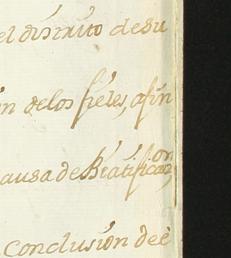 el distrito de su
n de los fieles, afin
ausa de Beatificaon,
conclusión de é